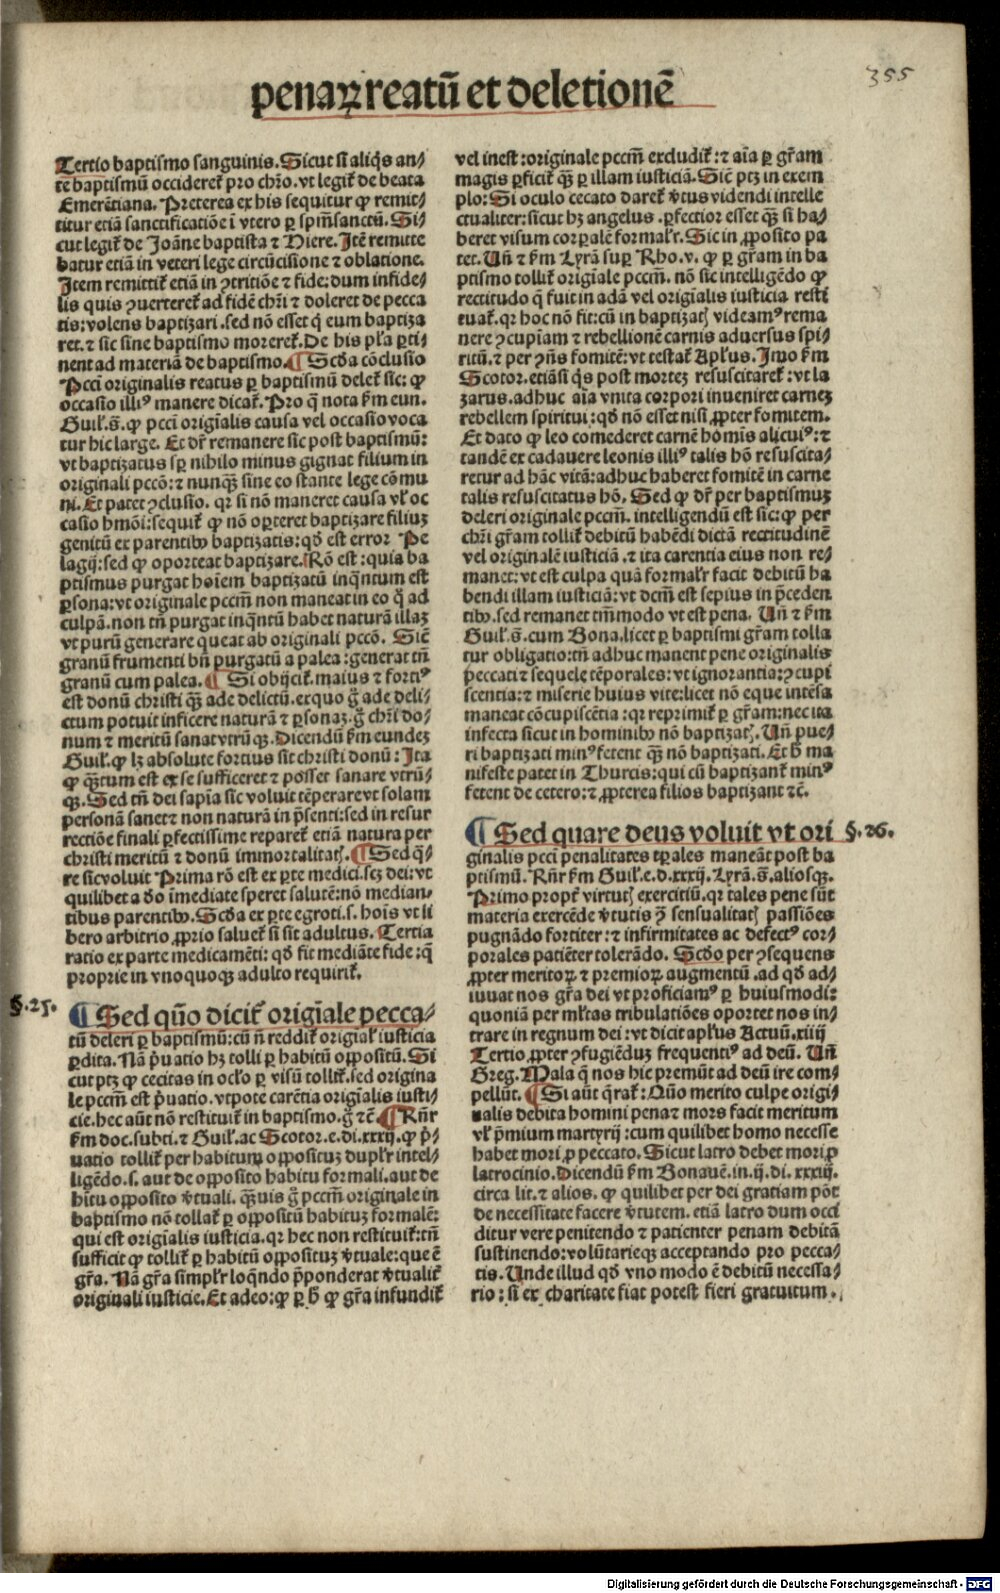 355
penaꝝ reatū et deletionē
Tertio baptismo sanguinis. Sicut si aliqͥs an⸗
te baptismū occideret᷑ pro chr̄o. vt legit᷑ de beata
Emerētiana. Preterea ex his sequitur ꝙ remit⸗
titur etiā sanctificatiōe ī vtero ꝑ spm̄sanctū. Si⸗
cut legit᷑ de Joāne baptista ⁊ Hiere. Itē remitte
batur etiā in veteri lege circūcisione ⁊ oblatione.
Item remittit᷑ etiā in ꝯtritiōe ⁊ fide: dum infide⸗
lis quis ꝯuerteret᷑ ad fidē chr̄i ⁊ doleret de pecca
tis: volens baptizari. sed nō esset qͥ eum baptiza
ret. ⁊ sic sine baptismo moreret᷑. De his pl̓a ꝑti⸗
nent ad materiā de baptismo. ¶ Scd̓a cōclusio
Pcc̄i originalis reatus ꝑ baptismū delet᷑ sic: ꝙ
occasio illiꝰ manere dicat᷑. Pro qͦ nota ẜm eun.
Guil̓. s̄. ꝙ pcc̄i origīalis causa vel occasio voca
tur hic large. Et dr̄ remanere sic post baptismū:
vt baptizatus sꝑ nihilo minus gignat filium in
originali pcc̄o: ⁊ nunqͣꝫ sine eo stante lege cōmu
ni. Et patet ꝯclusio. qꝛ si nō maneret causa vl̓ oc
casio hmōi: sequit᷑ ꝙ nō oꝑteret baptizare filiuꝫ
genitū ex parentibꝰ baptizatis: qd̓ est error Pe
lagij: sed ꝙ oporteat baptizare. Rō est: quia ba
ptismus purgat hoīem baptizatū inqͣntum est
ꝑsona: vt originale pcc̄m non maneat in eo qͦ ad
culpā. non tn̄ purgat inqͣntū habet naturā illaꝫ
vt purū generare queat ab originali pcc̄o. Sic̄
granū frumenti bn̄ purgatū a palea: generat tn̄
granū cum palea. ¶ Si obijcit᷑. maius ⁊ fortiꝰ
est donū christi qͣꝫ ade delictū. ex quo g̊ ade deli⸗
ctum potuit inficere naturā ⁊ ꝑsonaꝫ. g̊ chr̄i do⸗
num ⁊ meritū sanat vtrūqꝫ. Dicendū ẜm eundeꝫ
Guil̓. ꝙ lꝫ absolute fortius sit christi donū: Ita
ꝙ qͣꝫtum est ex se sufficeret ⁊ posset sanare vtrū⸗
qꝫ. Sed tn̄ dei sapīa sic voluit tēperare vt solam
personā sanet ⁊ non naturā in p̄senti: sed in resur
rectiōe finali ꝑfectissime reparet᷑ etiā natura per
christi meritū ⁊ donū immortalitatꝭ. ¶ Sed qͣ⸗
re sic voluit Prima rō est ex ꝑte medici. scꝫ dei: vt
quilibet a deo īmediate speret salutē: nō median⸗
tibus parentibꝰ. Scd̓a ex ꝑte egroti. s. hoīs vt li
bero arbitrio ꝓprio saluet᷑ si sit adultus. Tertia
ratio ex parte medicamēti: qd̓ fit mediāte fide: qͣ
proprie in vnoquoqꝫ adulto requirit᷑.
§. 25. ¶ Sed quō dicit᷑ origīale pecca⸗
tū deleri ꝑ baptismū: cū n̄ reddit᷑ origial̓ iusticia
ꝑdita. Nā p̓uatio hꝫ tolli ꝑ habitū oppositū. Si
cut ptꝫ ꝙ cecitas in ocl̓o ꝑ visū tollit᷑. sed origina
le pcc̄m est p̓uatio. vtpote carētia origīalis iusti⸗
cie. hec aūt nō restituit᷑ in baptismo. g̊ ⁊c̄ ¶ Rn̄r
ẜm doc. subti. ⁊ Guil̓. ac Scotor. e. di. xxxij. ꝙ p̓⸗
uatio tollit᷑ per habitum oppositūꝫ dupl̓r intel⸗
ligēdo. s. aut de opposito habitu formali. aut de
hitu opposito v̓tuali. qͣꝫuis g̊ pcc̄m originale in
baptismo nō tollat᷑ ꝑ oppositū habituꝫ formalē:
qui est origīalis iusticia. qꝛ hec non restituit᷑: tn̄
sufficit ꝙ tollit᷑ ꝑ habitū oppositūꝫ v̓tuale: que ē
gr̄a. Nā gr̄a simpl̓r loqͣndo p̄ponderat v̓tualit᷑
originali iusticie. Et adeo: ꝙ ꝑ h̓ ꝙ gr̄a infundit᷑
vel inest: originale pcc̄m excludit᷑: ⁊ aīa ꝑ gr̄am
magis ꝑficit᷑ qͣꝫ ꝑ illam iusticiā. Sic̄ ptꝫ in exem
plo: Si oculo cecato daret᷑ v̓tus videndi intelle
ctualiter: sicut hꝫ angelus. ꝑfectior esset qͣꝫ si ha⸗
beret visum corꝑalē formal̓r. Sic in ꝓposito pa
tet. Un̄ ⁊ ẜm Lyrā suꝑ Rho. v. ꝙ ꝑ gr̄am in ba
ptismo tollit᷑ origīale pcc̄m. nō sic intelligēdo ꝙ
rectitudo qͣ fuit in adā vel origīalis iusticia resti
tuat᷑. qꝛ hoc nō fit: cū in baptizatꝭ videamꝰ rema
nere ꝯcupīam ⁊ rebellionē carnis aduersus spi⸗
ritū. ⁊ per ꝯn̄s fomitē: vt testat᷑ Apl̓us. Imo ẜm
Scotor. etiāsi qͥs post morteꝫ resuscitaret᷑: vt la
zarus. adhuc aīa vnita corpori inueniret carneꝫ
rebellem spiritui: qd̓ nō esset nisi ꝓpter fomitem.
Et dato ꝙ leo comederet carnē homīs alicuiꝰ: ⁊
tandē ex cadauere leonis illiꝰ talis hō resuscita⸗
retur ad hāc vitā: adhuc haberet fomitē in carne
talis resuscitatus hō. Sed ꝙ dr̄ per baptismuꝫ
deleri originale pcc̄m. intelligendū est sic: ꝙ per
chr̄i gr̄am tollit᷑ debitū habēdi dictā rectitudinē
vel originalē iusticiā. ⁊ ita carentia eius non re⸗
manet: vt est culpa quā formal̓r facit debitū ha
bendi illam iusticiā: vt dcm̄ est sepius in p̄ceden
tibꝰ. sed remanet tm̄modo vt est pena. Un̄ ⁊ ẜm
Guil̓. s̄. cum Bona. licet ꝑ baptismi gr̄am tolla
tur obligatio: tn̄ adhuc manent pene originalis
peccati ⁊ sequele tēporales: vt ignorantia: ꝯcupi
scentia: ⁊ miserie huius vite: licet nō eque intēsa
maneat cōcupiscētia: qꝛ reprimit᷑ ꝑ gr̄am: nec ita
infecta sicut in hominibꝰ nō baptizatꝭ. Un̄ pue⸗
ri baptizati minꝰ fetent qͣꝫ nō baptizati. Et h̓ ma
nifeste patet in Thurcis: qui cū baptizant᷑ minꝰ
fetent de cetero: ⁊ ꝓpterea filios baptizant ⁊c̄.
¶ Sed quare deus voluit vt ori §. 26.
ginalis pcc̄i penalitates tꝑales maneāt post ba
ptismū. Rn̄r ẜm Guil̓. e. d. xxxij. Lyrā. s̄. aliosqꝫ.
Primo propt̓ virtutꝭ exercitiū. qꝛ tales pene sūt
materia exercēde v̓tutis ꝯͣ sensualitatꝭ passiōes
pugnādo fortiter: ⁊ infirmitates ac defectꝰ cor⸗
porales patiēter tolerādo. Scd̓o per ꝯsequens
ꝓpter meritoꝝ ⁊ premioꝝ augmentū. ad qd̓ ad⸗
iuuat nos gr̄a dei vt proficiamꝰ ꝑ huiusmodi:
quoniā per ml̓tas tribulatiōes oportet nos in⸗
trare in regnum dei: vt dicit apl̓us Actuū. xiiij
Tertio ꝓpter ꝯfugiēduꝫ frequentiꝰ ad deū. Un̄
Greg. Mala qͣ nos hic premūt ad deū ire com⸗
pellūt. ¶ Si aūt qͣrat᷑: Quō merito culpe origi⸗
nalis debita homini pena ⁊ mors facit meritum
vl̓ p̄mium martyrij: cum quilibet homo necesse
habet mori ꝓ peccato. Sicut latro debet mori ꝓ
latrocinio. Dicendū ẜm Bonauē. in. ij. di. xxxiij.
circa lit. ⁊ alios. ꝙ quilibet per dei gratiam pōt
de necessitate facere v̓tutem. etiā latro dum occi
ditur vere penitendo ⁊ patienter penam debitā
sustinendo: volūtarieqꝫ acceptando pro pecca⸗
tis. Unde illud qd̓ vno modo ē debitū necessa⸗
rio: si ex charitate fiat potest fieri gratuitum.
Digitalisierung gefördert durch die Deutsche Forschungsgemeinschaft - DFG